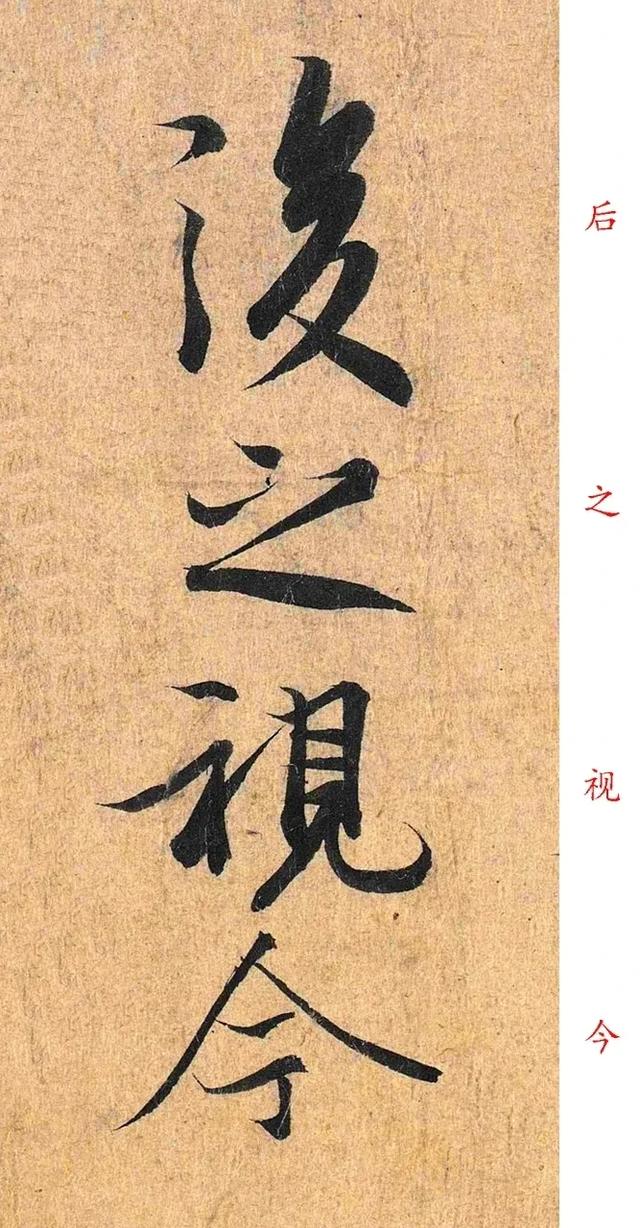 後之視今
后之视今